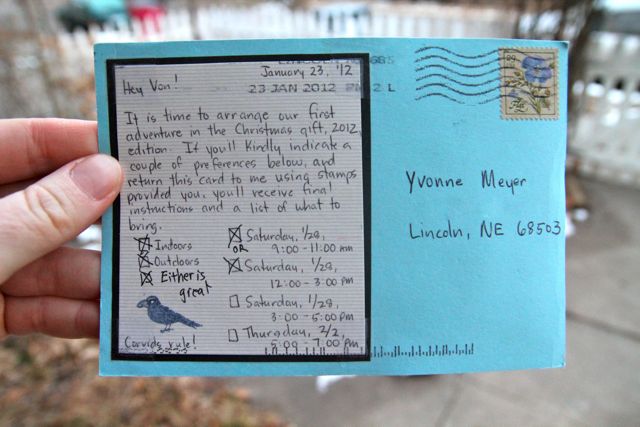 January 23, '12
23 JAN 2012 PM 2 L
Hey Von!
It is time to arrange our first
adventure in the Christmas gift, 2012
edition. If you'll kindly indicate a
couple of preferences below, and
return this card to me using stamps
provided you, you'll receive final
instructions and a list of what to
bring.
Indoors
Outdoors
Either is
great
Saturday, 1/28,
9:00-11:00 AM
OR
Saturday, 1/28,
12:00-3:00 PM
Saturday, 1/28,
3:00-5:00 PM
Thursday, 2/2,
5:00-7:00 PM
Corvids rule!
Yvonne Meyer
Lincoln, NE 68503